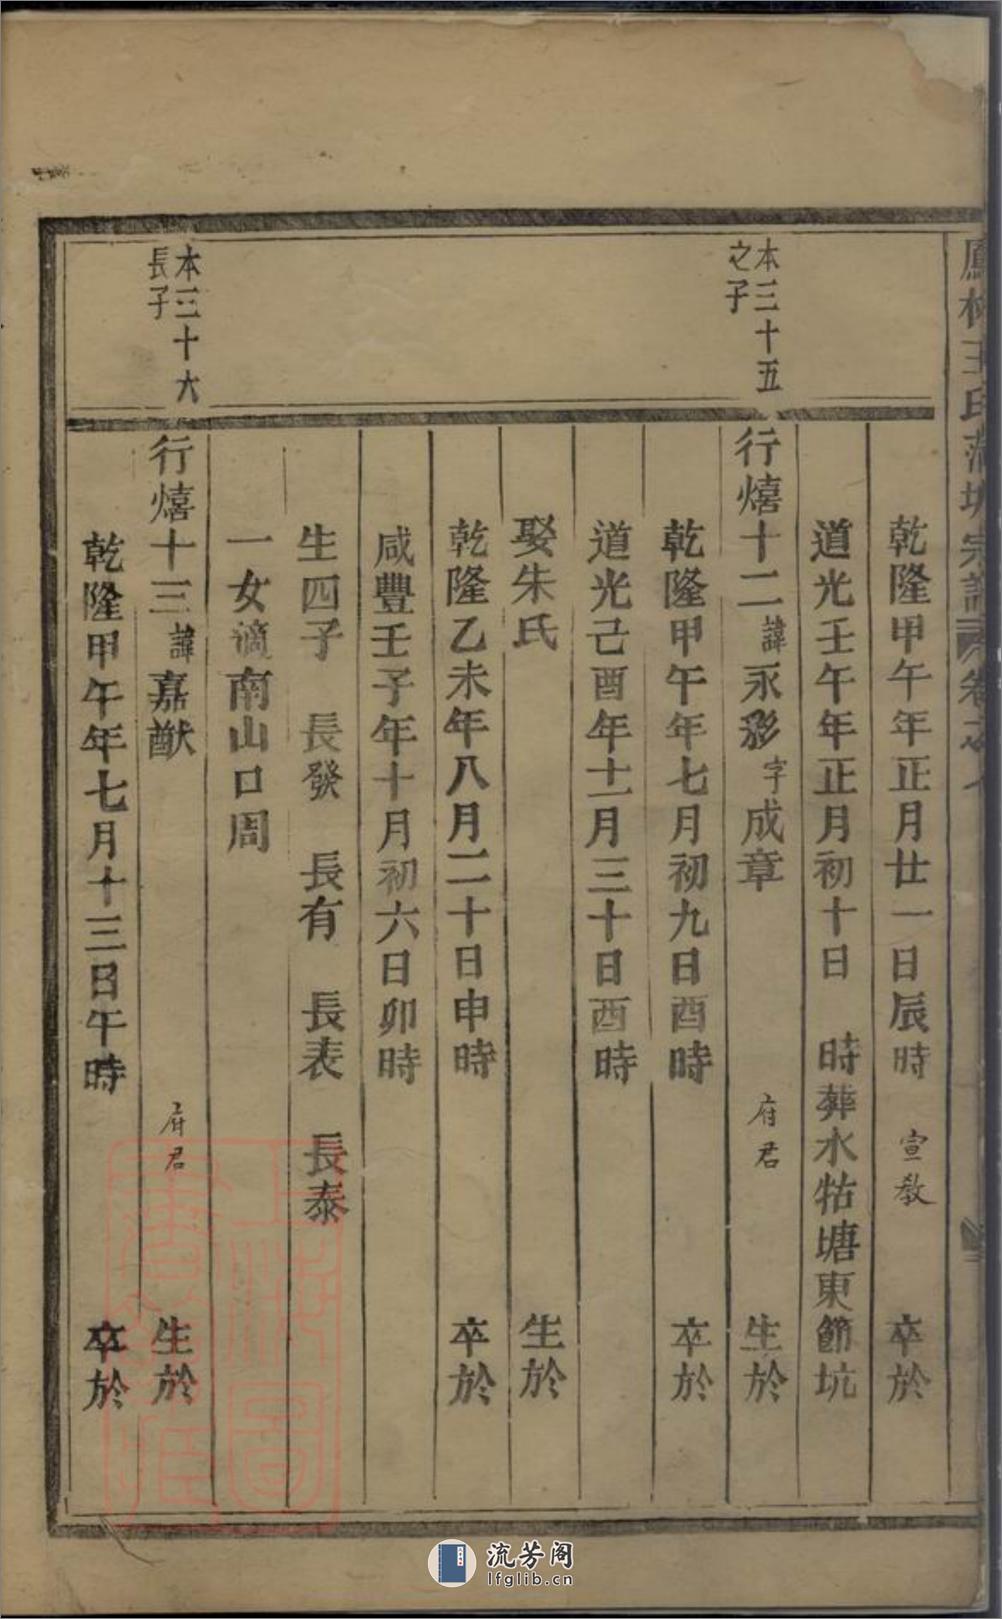 王氏蒲塘宗譜
乾隆甲午年正月廿一日辰時 宣教 卒於
道光壬午年正月初十日 時葬水牯塘東節坑
本三十五
之子
行熺十二諱永彩字成章 府君 生於
乾隆甲午年七月初九日酉時 卒於
道光己酉年十一月三十日酉時
娶朱氏 生於
乾隆乙未年八月二十日申時 卒於
咸豐壬子年十月初六日卯時
生四子 長發 長有 長表 長泰
一女適南山口周
本三十六
長子
行熺十三諱嘉猷 府君 生於
乾隆甲午年七月十三日午時 卒於
上海圖
書館藏
流芳阁
lfglib.cn